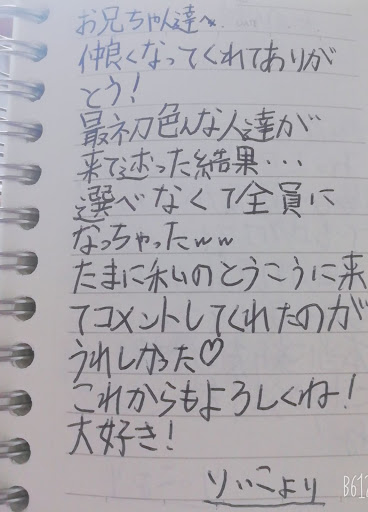 お兄ちゃん達へ
仲良くなってくれてありが
とう!
最初色んな人達が
来て迷った結果・・・
選べなくて全員に
なっちゃったww
たまに私のとうこうに来
てコメントしてくれたのが
うれしかった♡
これからもよろしくね!
大好き!
りいこより
B612